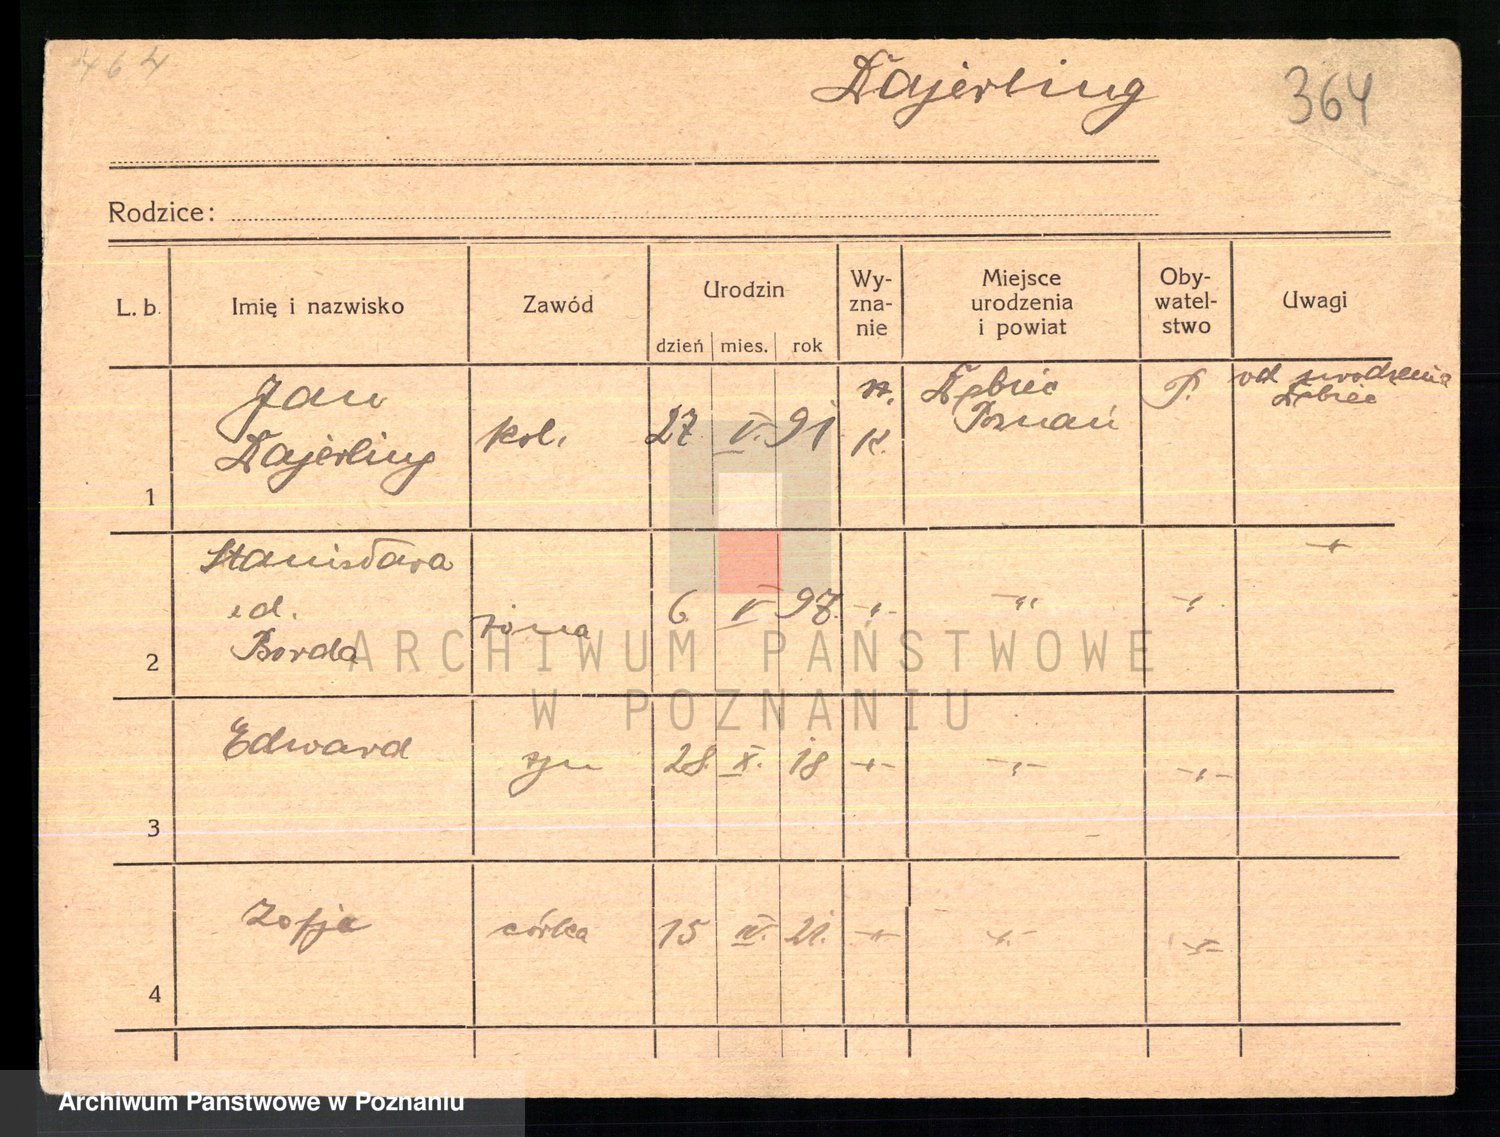 464
Dajerling
364
Rodzice:
L. b. Imię i nazwisko Zawód Urodzin dzień mies. rok Wyznanie Miejsce urodzenia i powiat Obywatelstwo Uwagi
1 Jan Dajerling kol. 27 V. 91 K. Dębiec Poznań P. od urodzenia Dębiec
2 Stanisława Borda żona 6 V 97. -"- -"- -"- -"-
3 Edward syn 28. X. 18 -"- -"- -"-
4 Zofja córka 15 IV. 21. -"- -"- -"-
ARCHIWUM PAŃSTWOWE
W POZNANIU
Archiwum Państwowe w Poznaniu